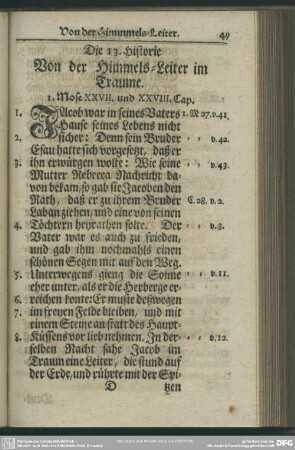 Von der Himmels-Leiter. 49
Die 13. Historie
Von der Himmels-Leiter im
Traume.
1. Mose XXVII. und XXVIII. Cap.
1. JAcob war in seines Vaters 1. M 27. v. 41.
Hause seines Lebens nicht
2. sicher: Denn sein Bruder v. 42.
Esau hatte sich vorgesetzt, daß er
3. ihn erwürgen wolte: Wie seine v. 43.
Mutter Rebecca Nachricht da-
von bekam, so gab sie Jacob den
Rath, daß er zu ihrem Bruder C. 28. v. 2.
Laban ziehen, und eine von seinen
4. Töchtern heyrathen solte. Der v. 3.
Vater war es auch zu frieden,
und gab ihm nochmahls einen
schönen Segen mit auf den Weg.
5. Unterwegens gieng die Sonne v. 11.
6. eher unter, als er die Herberge er-
reichen konte: Er muste deßwegen
7. im freyen Felde bleiben, und mit
einem Steine an statt des Haupt-
8. Küssens vor lieb nehmen. In der- v. 12.
selben Nacht sahe Jacob im
Traum eine Leiter, die stund auf
der Erde, und rührte mit der Spi-
D tzen